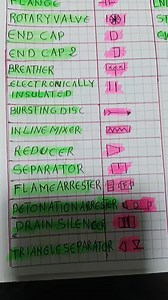 FLANGE
ROTARYVALVE
END CAP
END CAP 2
BREATHER
ELECTRONICALLY
INSULATED
BURSTING DISC
INLINEMIXER
REDUCER
SEPARATOR
FLAMEARRESTER
DETONATIONARRESTER
DRAIN SILENCER
TRIANGLESEPARATOR
LN
ST